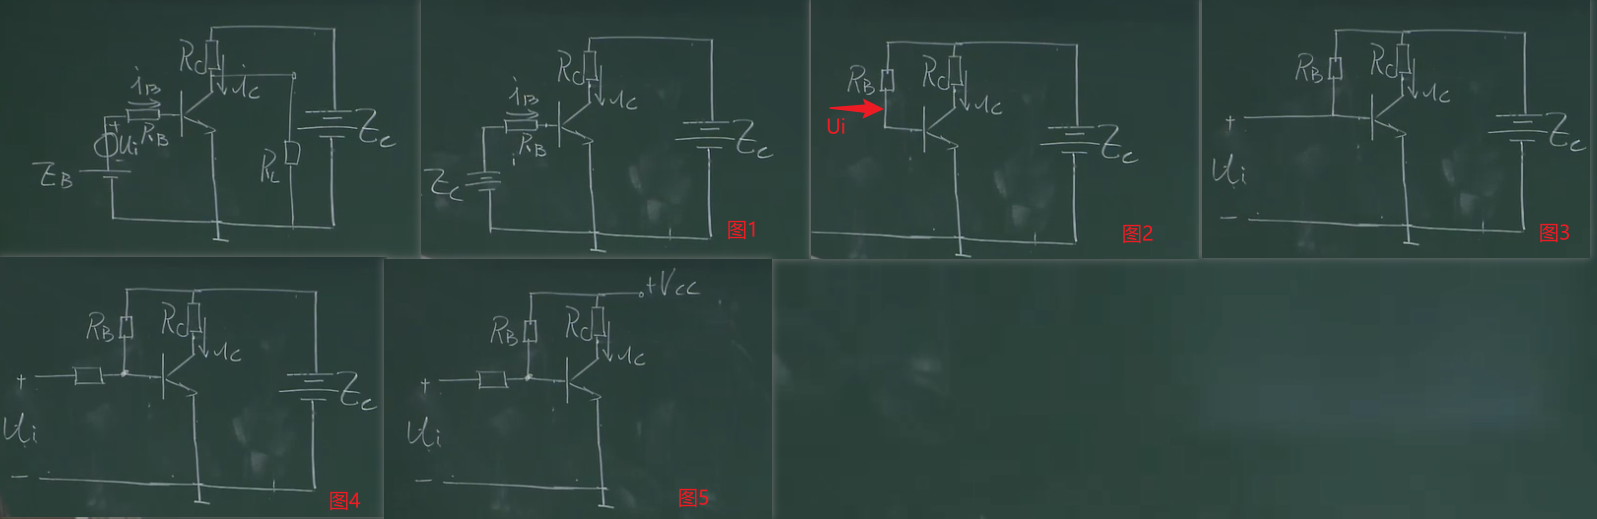 Rc
iB
ic
RB
+
ui
-
EB
RL
Ec
Rc
iB
ic
RB
Ec
Ec
图1
RB
Rc
ic
Ui
Ec
图2
RB
Rc
ic
+
ui
-
Ec
图3
RB
Rc
ic
+
ui
-
Ec
图4
+Vcc
RB
Rc
ic
+
ui
-
图5